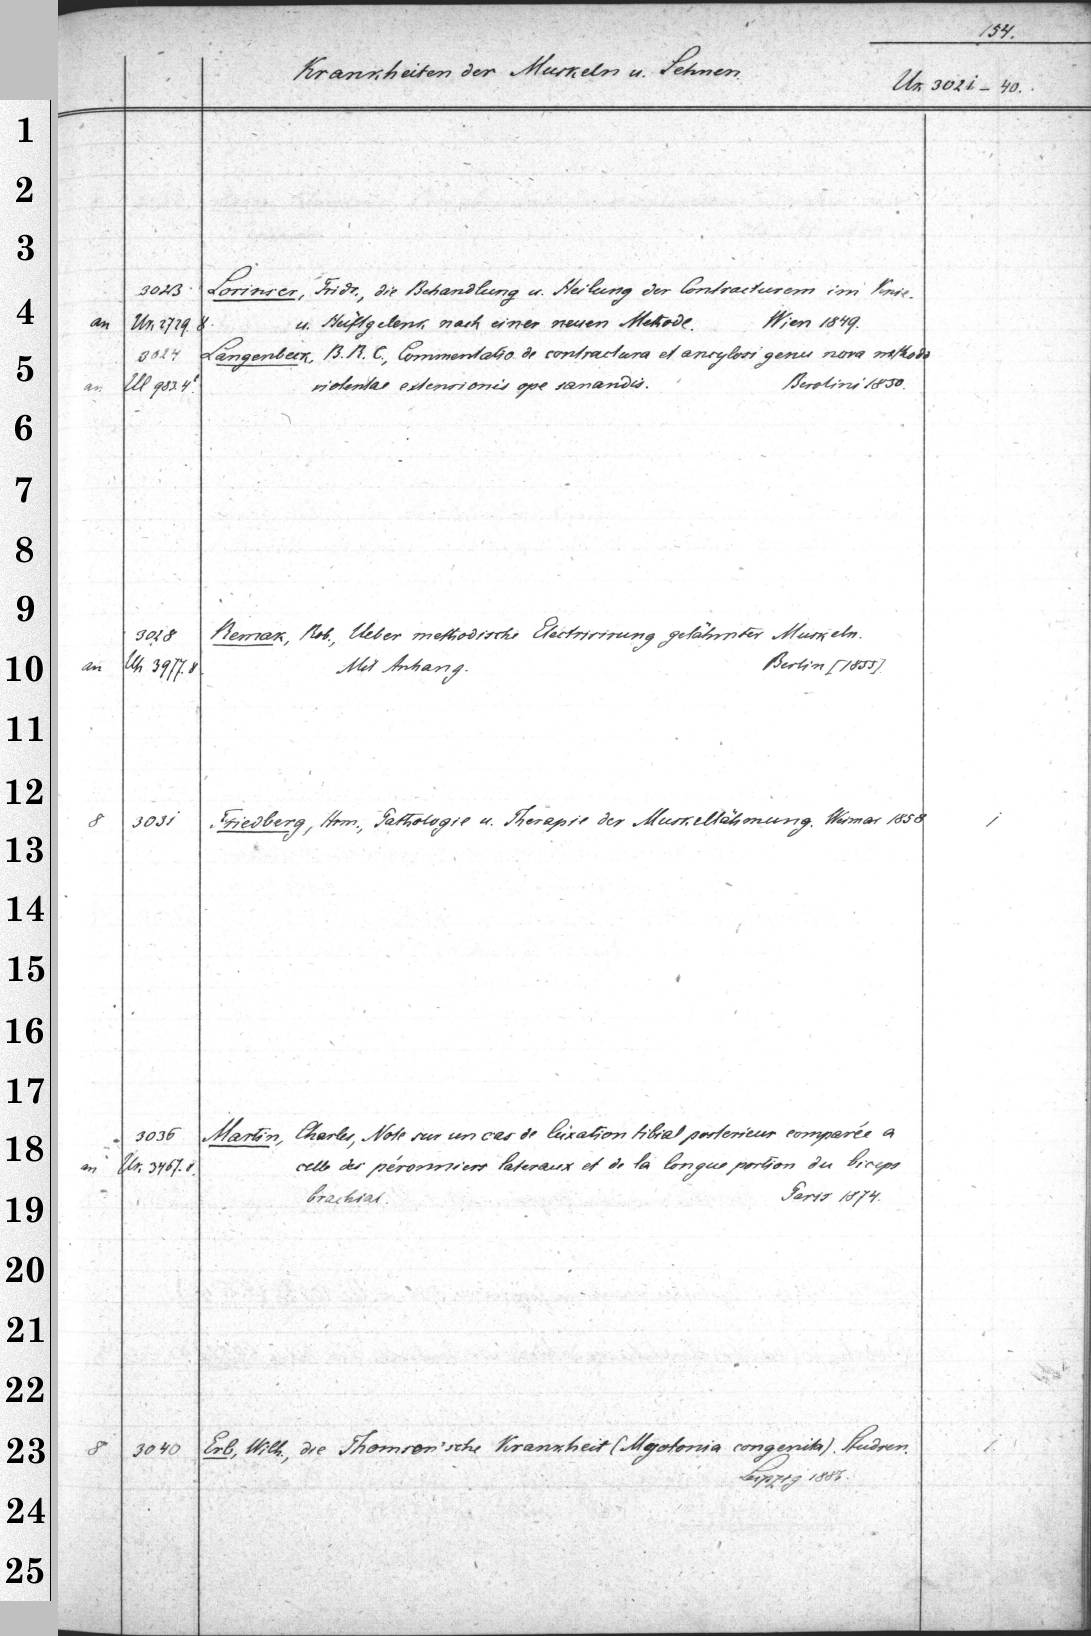 154.
Krankheiten der Muskeln u. Sehnen.
Un 3021 - 40.
1
2
3
3023 Lorinser, Fridr., die Behandlung u. Heilung der Contracturem im Knie-
4
an Un 2729. 8. u. Hüftgelenk nach einer neuen Methode. Wien 1849.
3024 Langenbeck, B. R. C., Commentatio de contractura et ancylosi genu nova methodo
5
an Ul 983. 4° violentae extensionis ope sanandis. Berolini 1850.
6
7
8
9
3028 Remak, Rob., Ueber methodische Electrisirung gelähmter Muskeln.
10
an Uh 3977. 8. Mit Anhang. Berlin [1855]
11
12
8 3031 Friedberg, Hrm., Pathologie u. Therapie der Muskellähmung. Weimar 1858 1
13
14
15
16
17
3036 Martin, Charles, Note sur un cas de luxation tibial posterieur comparée a
18
an Un 3467. 8. celle des péronniers lateraux et de la longue portion du biceps
19
brachial. Paris 1874.
20
21
22
8 3040 Erb, Wilh., die Thomsen'sche Krankheit (Myotonia congenita). Studien. 1
23
Leipzig 1886.
24
25